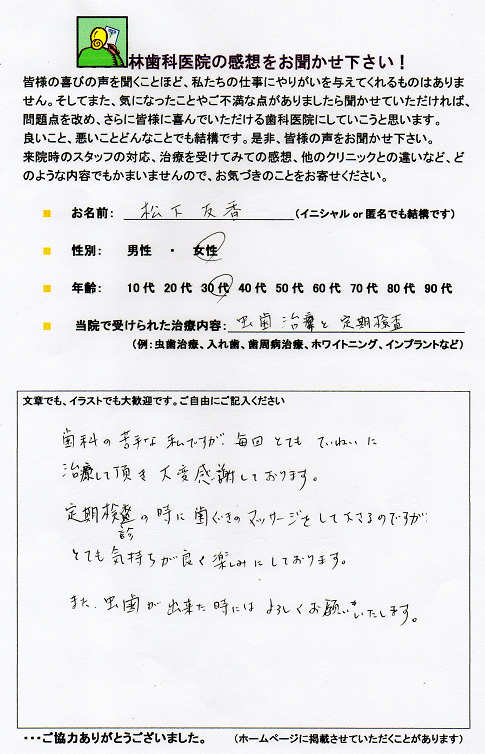 林歯科医院の感想をお聞かせ下さい！
皆様の喜びの声を聞くことほど、私たちの仕事にやりがいを与えてくれるものはありま
せん。そしてまた、気になったことやご不満な点がありましたら聞かせていただければ、
問題点を改め、さらに皆様に喜んでいただける歯科医院にしていこうと思います。
良いこと、悪いことどんなことでも結構です。是非、皆様の声をお聞かせ下さい。
来院時のスタッフの対応、治療を受けてみての感想、他のクリニックとの違いなど、ど
のような内容でもかまいませんので、お気づきのことをお寄せください。
お名前： 松下友香 （イニシャル or 匿名でも結構です）
性別： 男性 ・ 女性
年齢： 10代 20代 30代 40代 50代 60代 70代 80代 90代
当院で受けられた治療内容： 虫歯治療と定期検査
（例：虫歯治療、入れ歯、歯周病治療、ホワイトニング、インプラントなど）
文章でも、イラストでも大歓迎です。ご自由にご記入ください
歯科の苦手な私ですが、毎回とてもていねいに
治療して頂き大変感謝しております。
定期検査の時に歯ぐきのマッサージをして下さるのですが
診
とても気持ちが良く楽しみにしております。
また、虫歯が出来た時にはよろしくお願いいたします。
・・・ご協力ありがとうございました。 （ホームページに掲載させていただくことがあります）